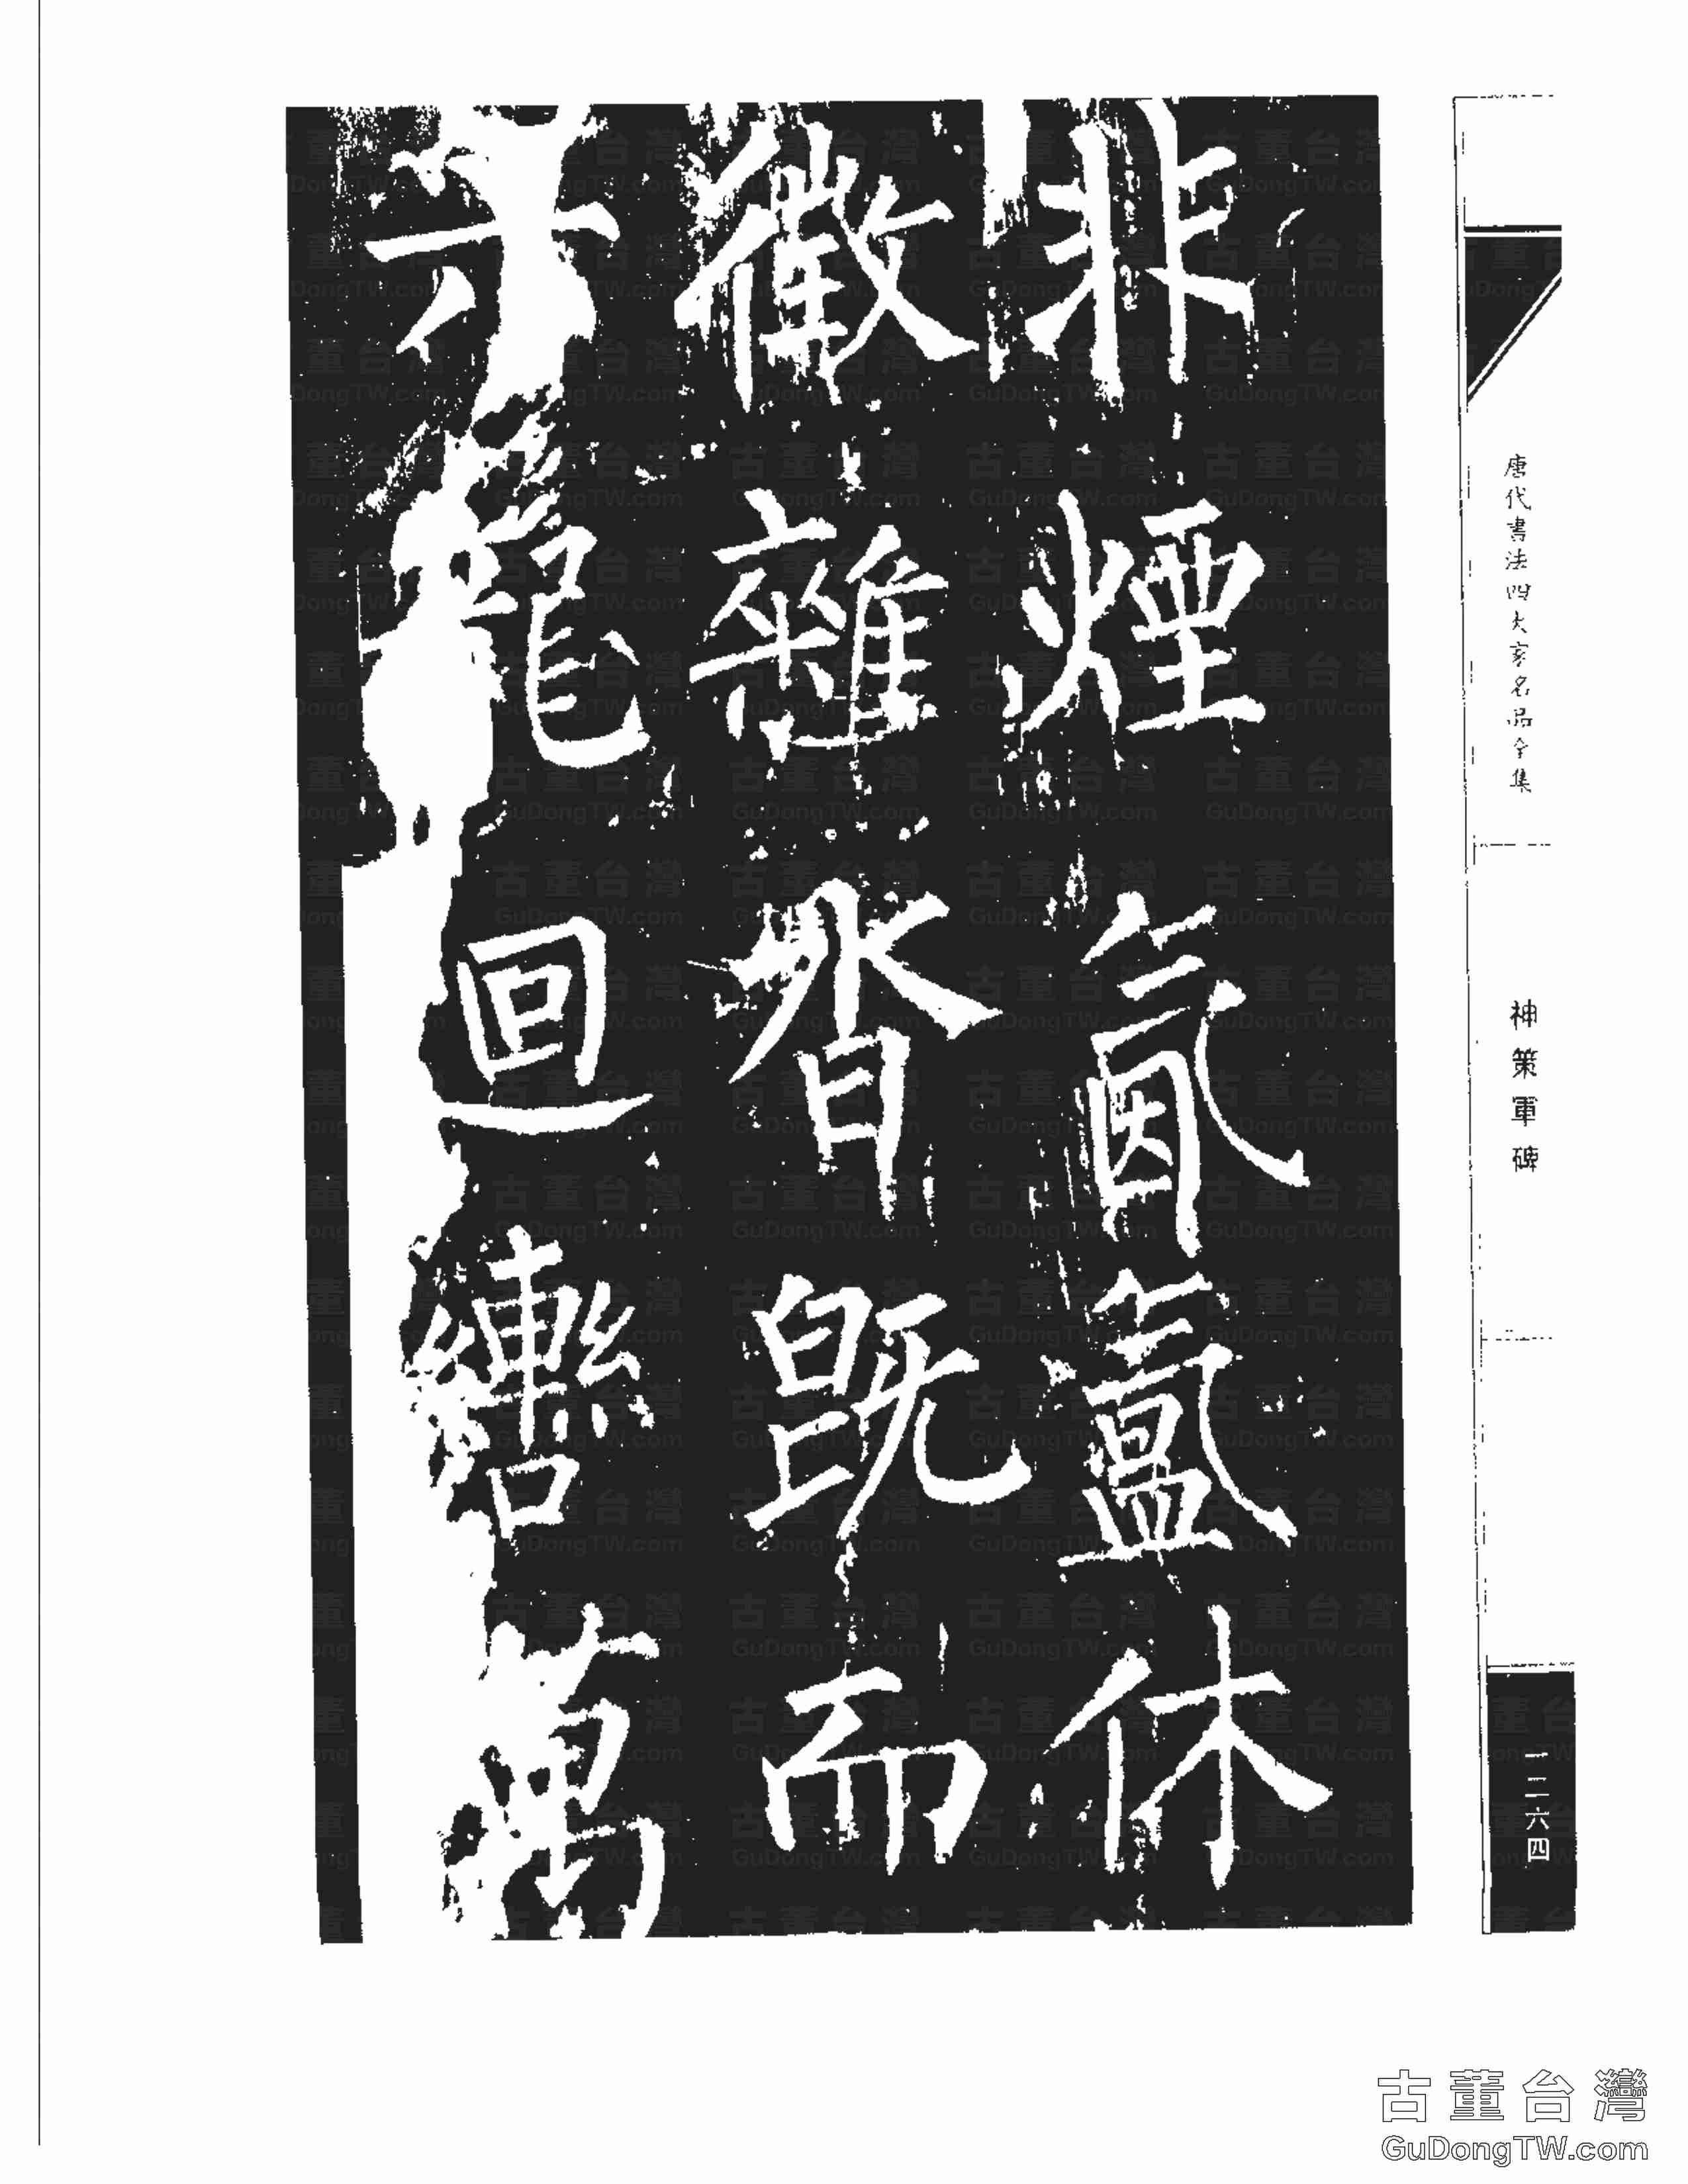 唐代書法四大家名品全集
神策軍碑
一二六四
非煙氤氳休
徵雜沓既而
六龍迴轡萬
古董台灣
GuDongTW.com